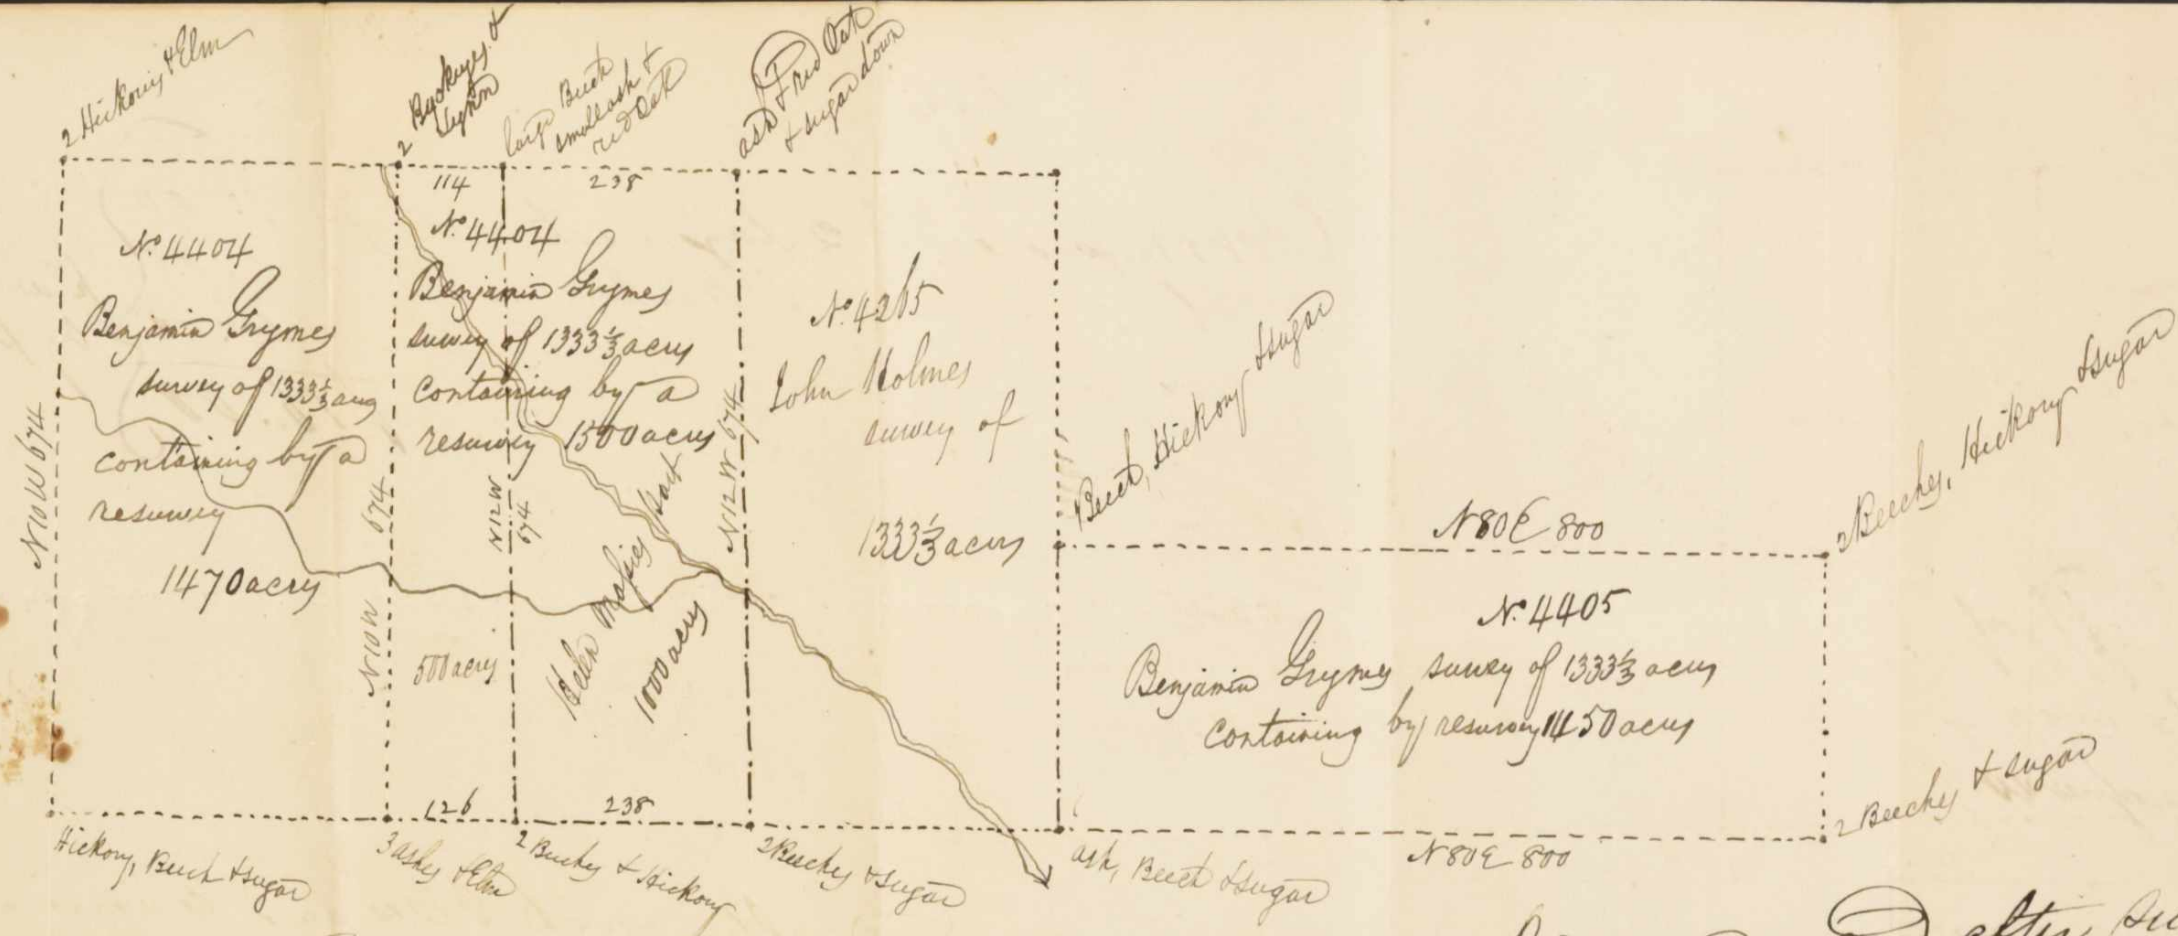 2 Hickorys & Elm
2 Buckeyes &
Lynn
large Beech
small ash &
red Oak
ash & red Oak
& sugar down
114
238
No. 4404
Benjamin Grymes
survey of 1333 1/3 acres
containing by a
resurvey
1470 acres
N10W 674
No. 4404
Benjamin Grymes
survey of 1333 1/3 acres
containing by a
resurvey 1500 acres
N10W 674
N12W
674
500 acres
Helen part
1000 acres
N12W 674
No. 4265
John Holmes
survey of
1333 1/3 acres
Beech, Hickory & sugar
N80E 800
2 Beeches, Hickory & sugar
No. 4405
Benjamin Grymes survey of 1333 1/3 acres
containing by resurvey 1450 acres
2 Beeches & sugar
126
238
Hickory, Beech & sugar
3 ashes & Elm
2 Buckeys & Hickory
2 Beeches & sugar
ash, Beech & sugar
N80E 800